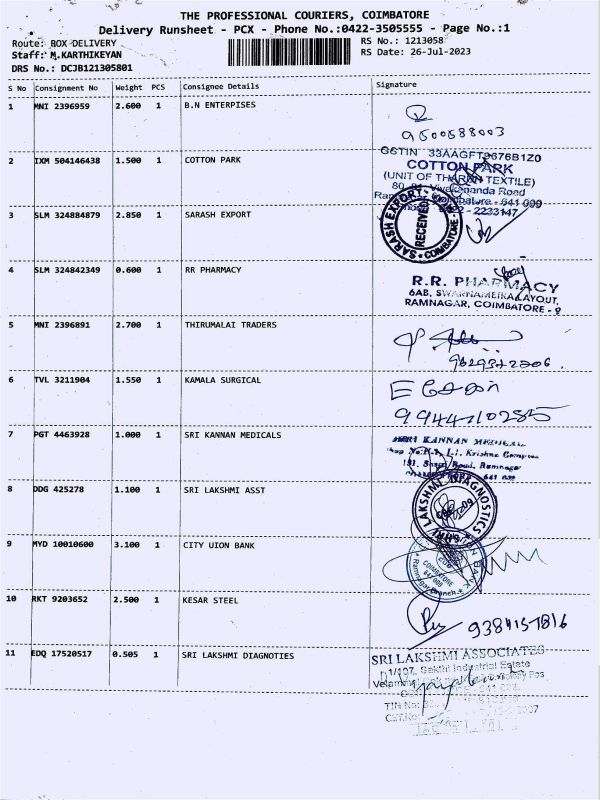 THE PROFESSIONAL COURIERS, COIMBATORE
Delivery Runsheet - PCX - Phone No.:0422-3505555 - Page No.:1
Route: BOX-DELIVERY RS No.: 1213058
Staff: M.KARTHIKEYAN RS Date: 26-Jul-2023
DRS No.: DCJB121305801
S No Consignment No Weight PCS Consignee Details Signature
1 MNI 2396959 2.600 1 B.N ENTERPISES
9500588003
2 IXM 504146438 1.500 1 COTTON PARK
GSTIN 33AAGFT9676B1Z0
COTTON PARK
(UNIT OF THARAN TEXTILE)
Vivekananda Road
Coimbatore - 641 009
2233147
3 SLM 324884879 2.850 1 SARASH EXPORT
SARASH EXPORT
RECEIVED
COIMBATORE
4 SLM 324842349 0.600 1 RR PHARMACY
R.R. PHARMACY
6AB, SWARNAMBIKA LAYOUT,
RAMNAGAR, COIMBATORE - 9
5 MNI 2396891 2.700 1 THIRUMALAI TRADERS
6 TVL 3211904 1.550 1 KAMALA SURGICAL
9944710285
7 PGT 4463928 1.000 1 SRI KANNAN MEDICALS
SRI KANNAN MEDICAL
Krishna Complex
Road, Ramnagar
8 DDG 425278 1.100 1 SRI LAKSHMI ASST
SRI LAKSHMI DIAGNOSTICS
9 MYD 10010600 3.100 1 CITY UION BANK
COIMBATORE
641 009
Ramnagar Branch
10 RKT 9203652 2.500 1 KESAR STEEL
11 EDQ 17520517 0.505 1 SRI LAKSHMI DIAGNOTIES
SRI LAKSHMI ASSOCIATES
Sakthi Industrial Estate
TIN No:
CST.No